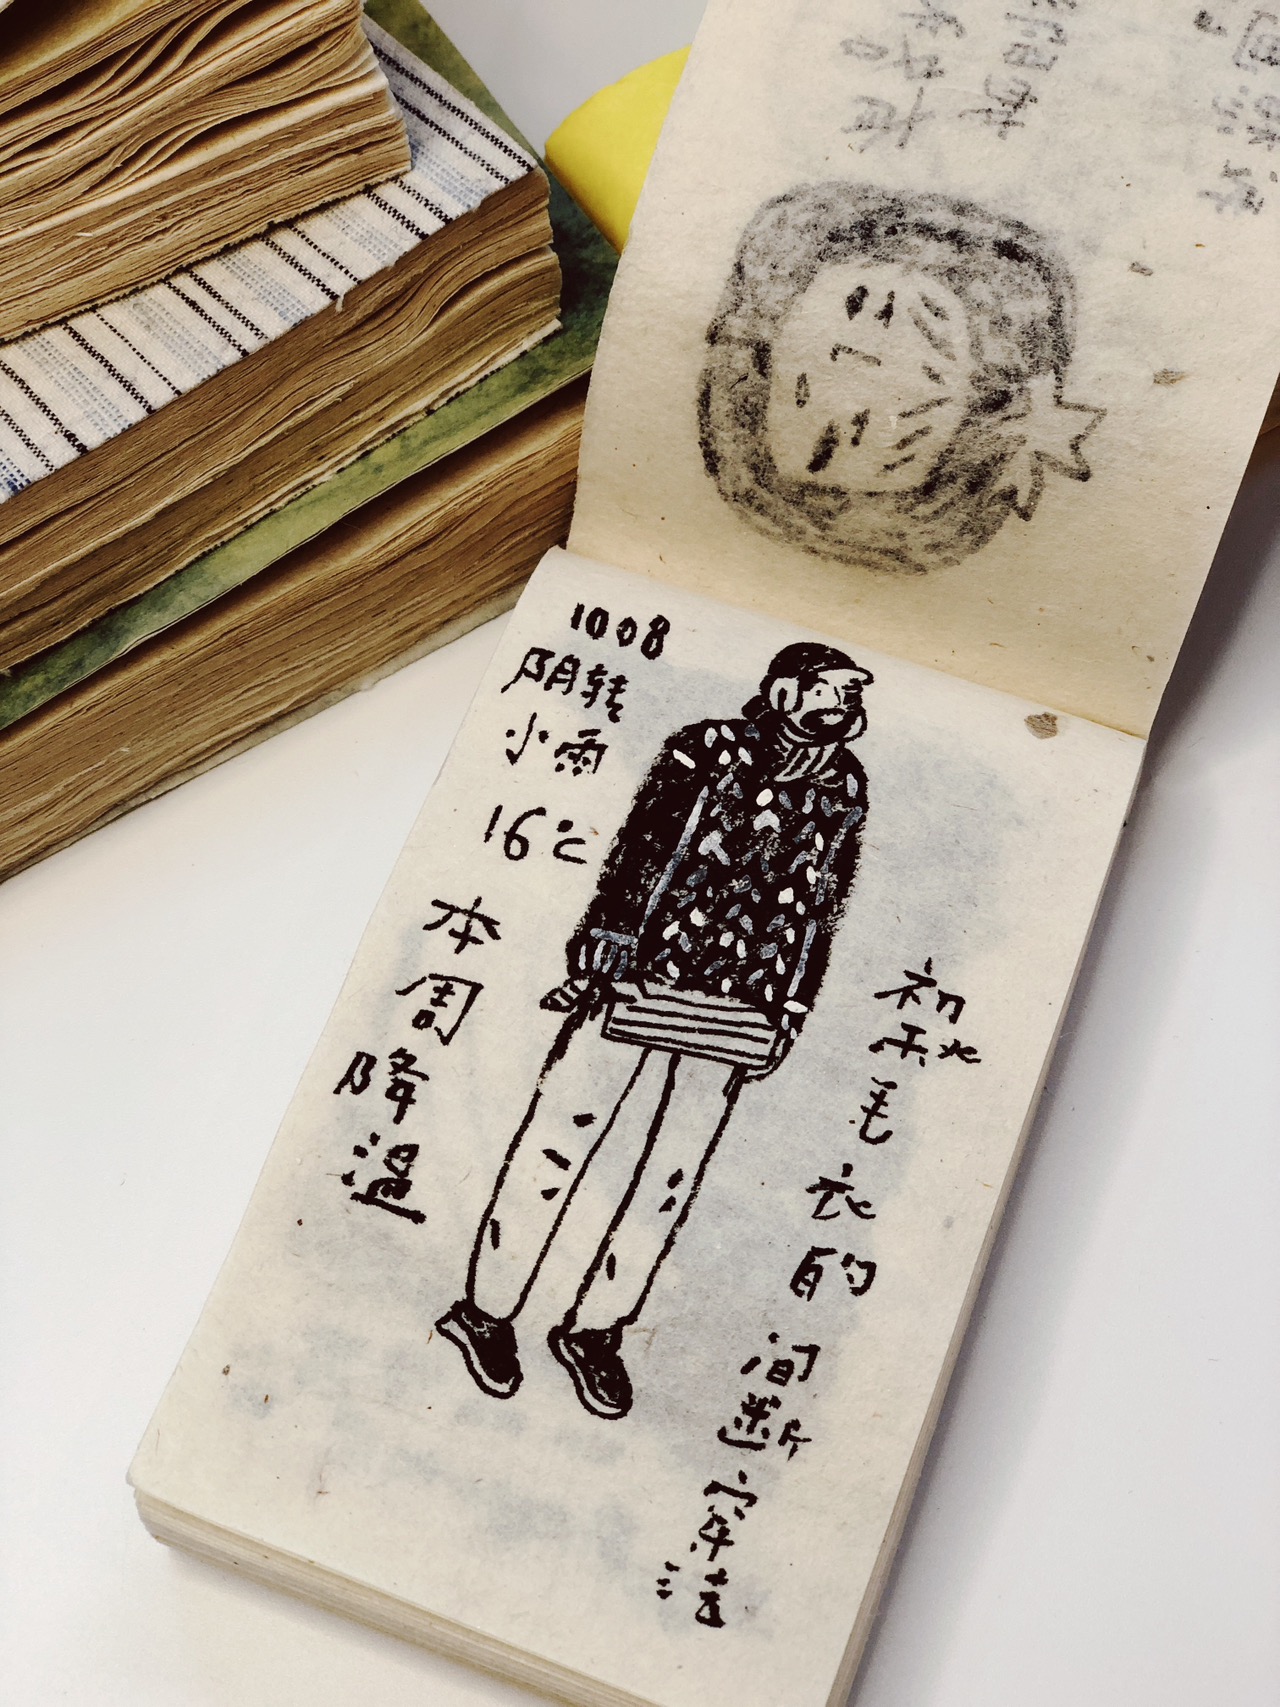 1008
阴转
小雨
16℃
本周降温
初秋毛衣的间断穿法